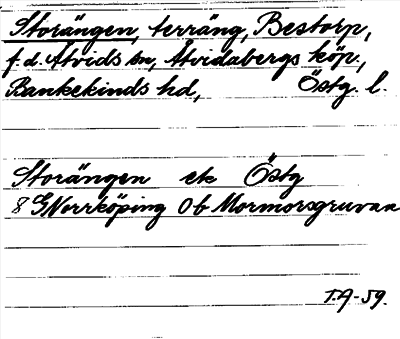 Storängen, terräng, Bestorp,
f.d. Åtvids sn, Åtvidabergs köp.,
Bankekinds hd, Östg. l.
Storängen ek Östg
8 G Norrköping 0b Mormorsgruvan
T.A-59.